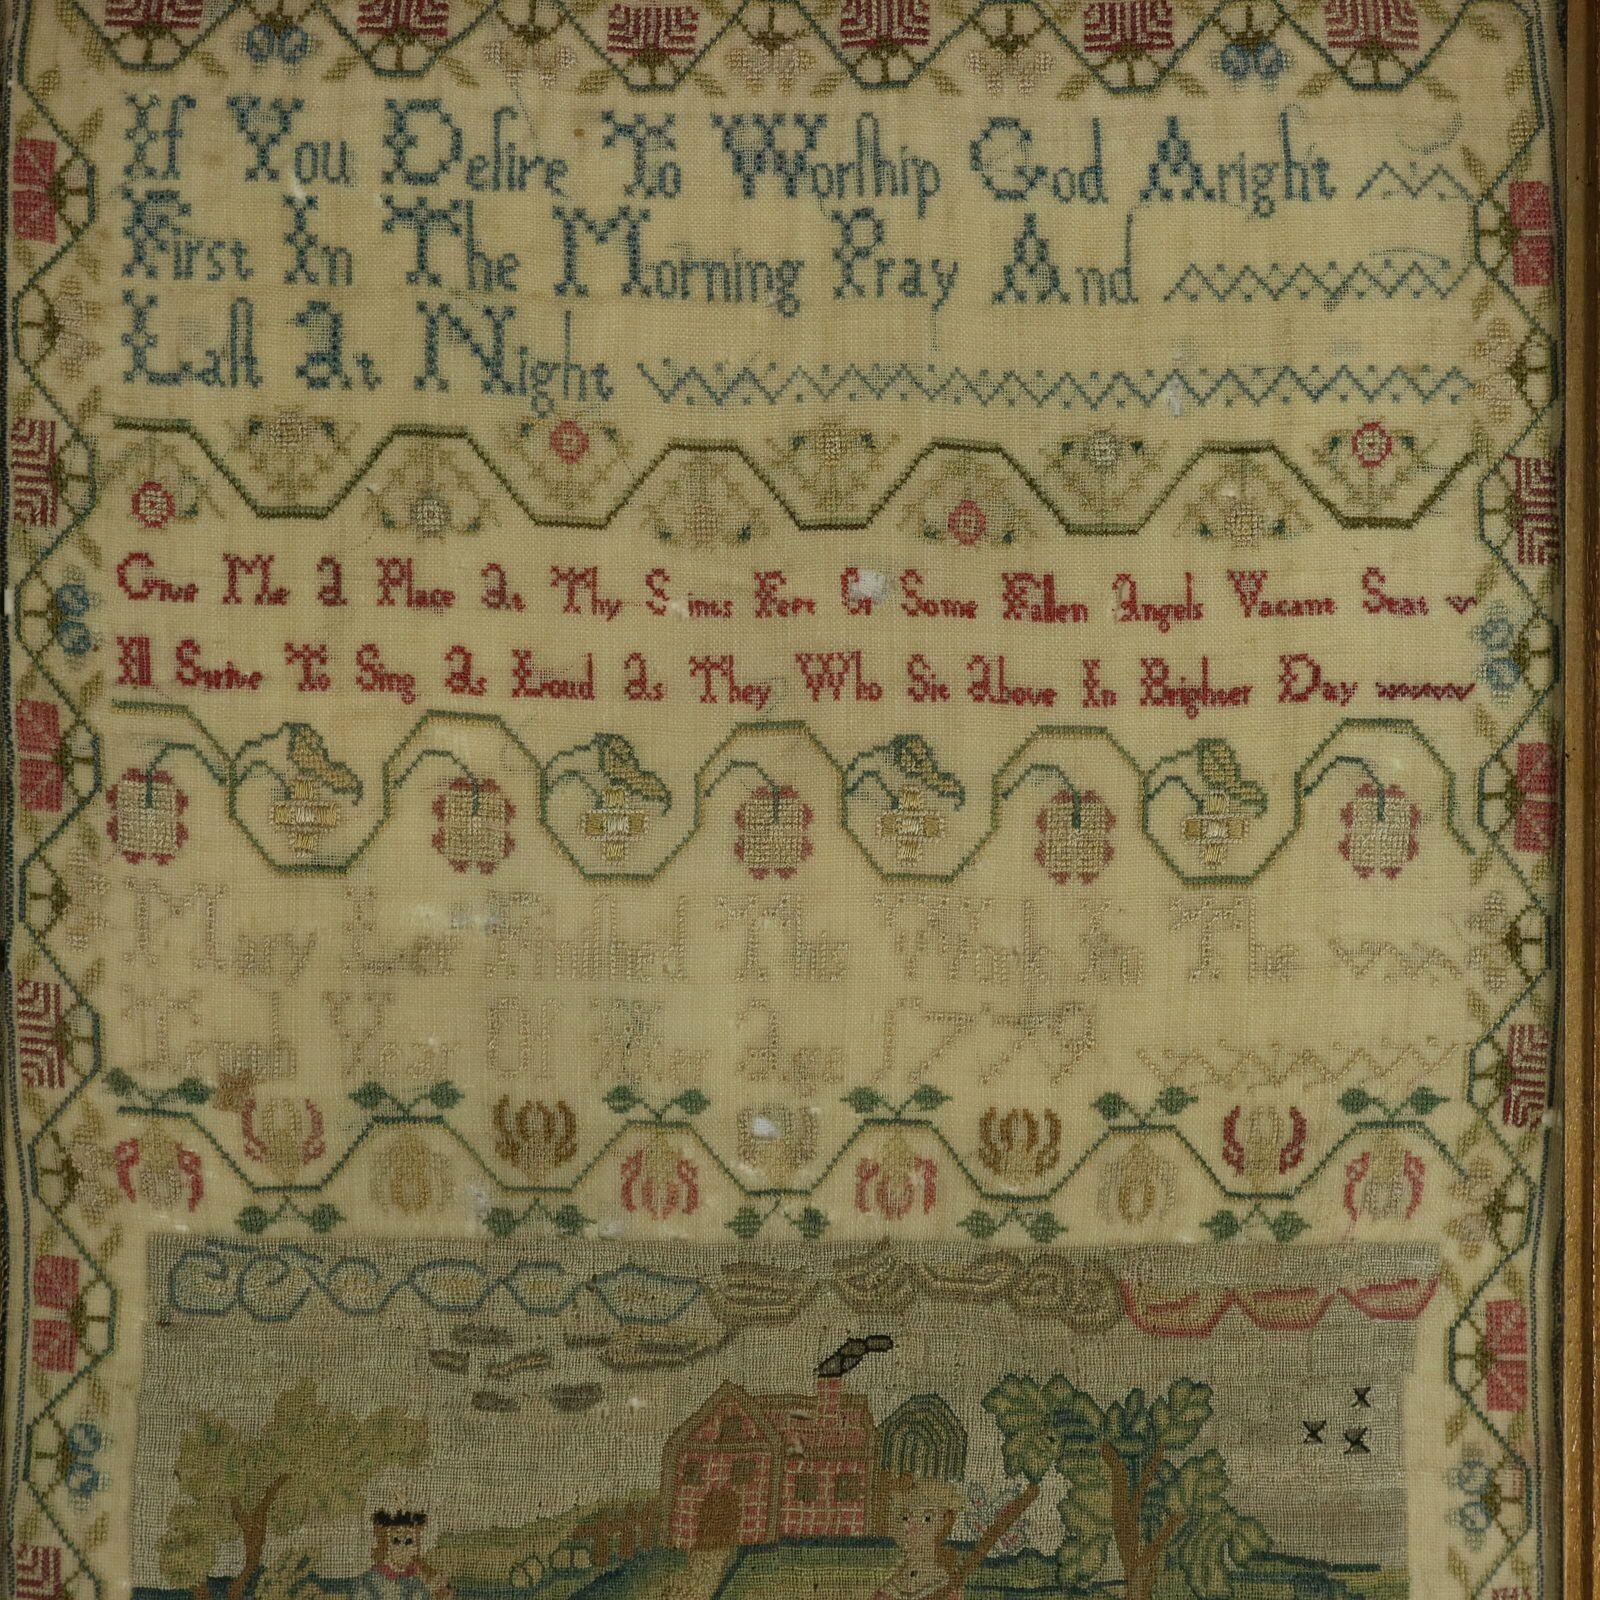 If You Deſire To Worſhip God Aright
First In The Morning Pray And
Laſt At Night
Give Me A Place At Thy Saints Feet Or Some Fallen Angels Vacant Seat
Ill Strive To Sing As Loud As They Who Sit Above In Brighter Day
Mary Lee Finiſhed This Work In The
Tenth Year Of Her Age 1779